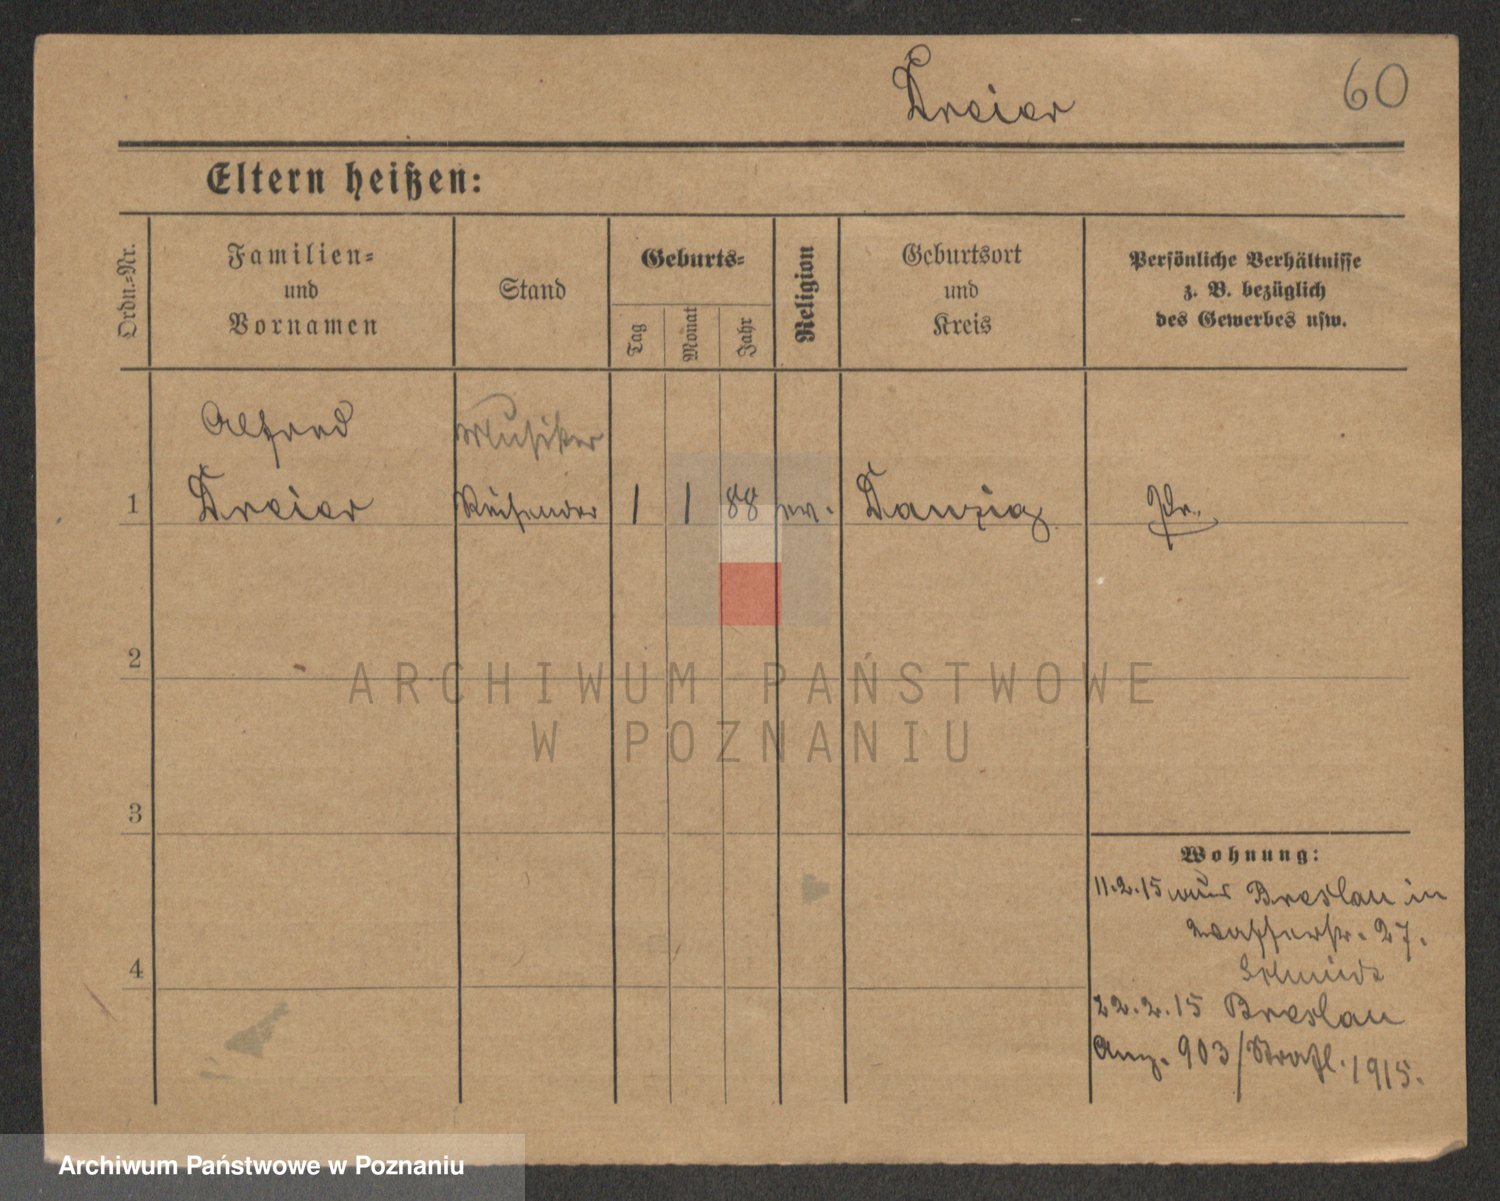 Dreier
60
Eltern heißen:
Ordn.-Nr.
Familien-
und
Vornamen
Stand
Geburts-
Tag
Monat
Jahr
Religion
Geburtsort
und
Kreis
Persönliche Verhältnisse
z. B. bezüglich
des Gewerbes usw.
Alfred
Musiker
1 Dreier Reisender 1 1 88 ev. Danzig Pr.
2
3
4
Wohnung:
11.2.15 aus Breslau in
Wasserstr. 27.
Schmidt
22.2.15 Breslau
Anz. 903/ 1915.
ARCHIWUM PAŃSTWOWE
W POZNANIU
Archiwum Państwowe w Poznaniu